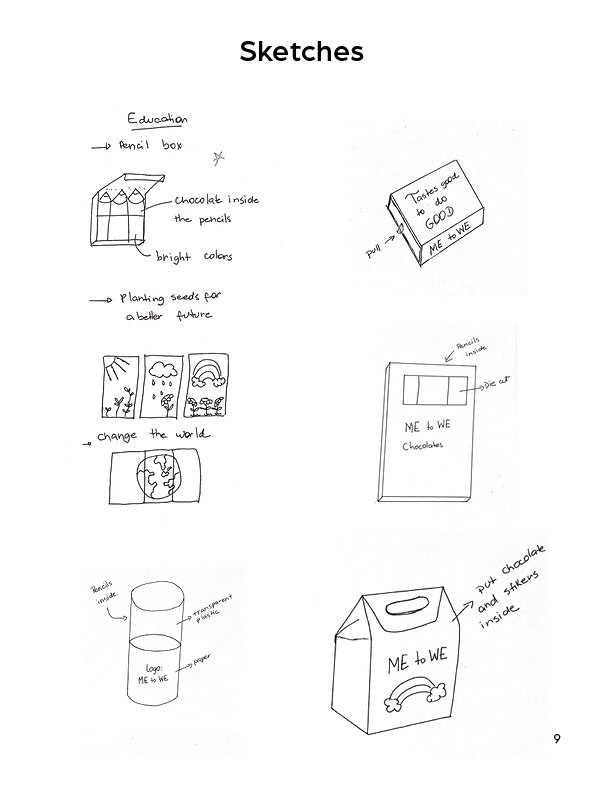 Sketches
Education
→ Pencil box
chocolate inside
the pencils
bright colors
→ Planting seeds for
a better future
→ change the world
Pencils
inside
→ Transparent
plastic
→ paper
logo:
ME to WE
Tastes good
to do
GOOD
ME to WE
pull →
Pencils
inside
→ Die cut
ME to WE
Chocolates
put chocolate
and stikers
inside
ME to WE
9